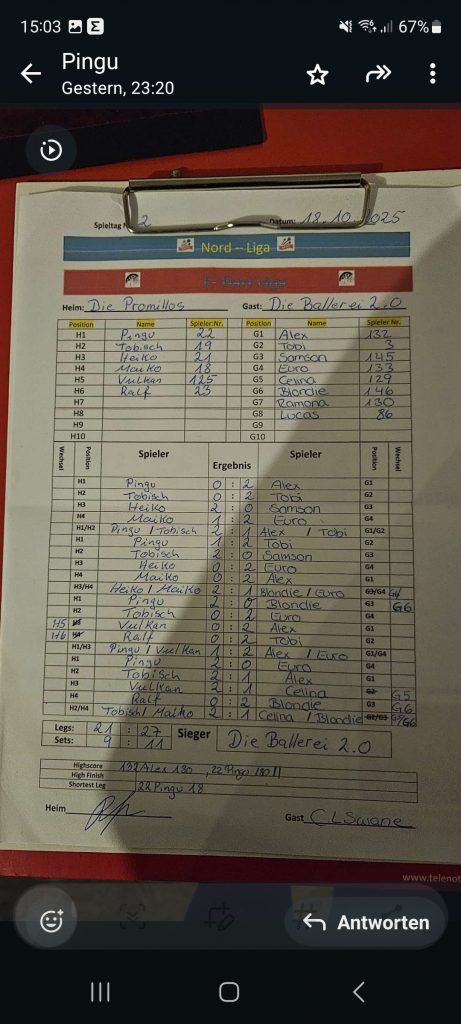 15:03 67%
Pingu
Gestern, 23:20
Spieltag N 2 Datum: 18.10.2025
Nord – Liga
E- Dart Liga
Heim: Die Promillos Gast: Die Ballerei 2.0
Position Name Spieler.Nr. Position Name Spieler Nr.
H1 Pingu 22 G1 Alex 132
H2 Tobisch 19 G2 Tobi 3
H3 Heiko 21 G3 Samson 145
H4 Maiko 18 G4 Euro 133
H5 Vulkan 125 G5 Celina 129
H6 Ralf 23 G6 Blondie 146
H7 G7 Ramona 130
H8 G8 Lucas 86
H9 G9
H10 G10
Wechsel Position Spieler Ergebnis Spieler Position Wechsel
H1 Pingu 0 : 2 Alex G1
H2 Tobisch 0 : 2 Tobi G2
H3 Heiko 2 : 0 Samson G3
H4 Maiko 1 : 2 Euro G4
H1/H2 Pingu / Tobisch 2 : 1 Alex / Tobi G1/G2
H1 Pingu 1 : 2 Tobi G2
H2 Tobisch 2 : 0 Samson G3
H3 Heiko 0 : 2 Euro G4
H4 Maiko 0 : 2 Alex G1
H3/H4 Heiko / Maiko 2 : 1 Blondie / Euro G3/G4 G6
H1 Pingu 2 : 0 Blondie G3 G6
H2 Tobisch 0 : 2 Euro G4
H5 H3 Vulkan 0 : 2 Alex G1
H6 H4 Ralf 0 : 2 Tobi G2
H1/H3 Pingu / Vulkan 1 : 2 Alex / Euro G1/G4
H1 Pingu 2 : 0 Euro G4
H2 Tobisch 2 : 1 Alex G1
H3 Vulkan 2 : 1 Celina G2 G5
H4 Ralf 0 : 2 Blondie G3 G6
H2/H4 Tobisch / Maiko 2 : 1 Celina / Blondie G2/G3 G5/G6
Legs: 21 : 27 Sieger Die Ballerei 2.0
Sets: 9 : 11
Highscore 132 Alex 180 , 22 Pingu 180 ||
High Finish
Shortest Leg 22 Pingu 18
Heim Gast
www.telenot
Antworten